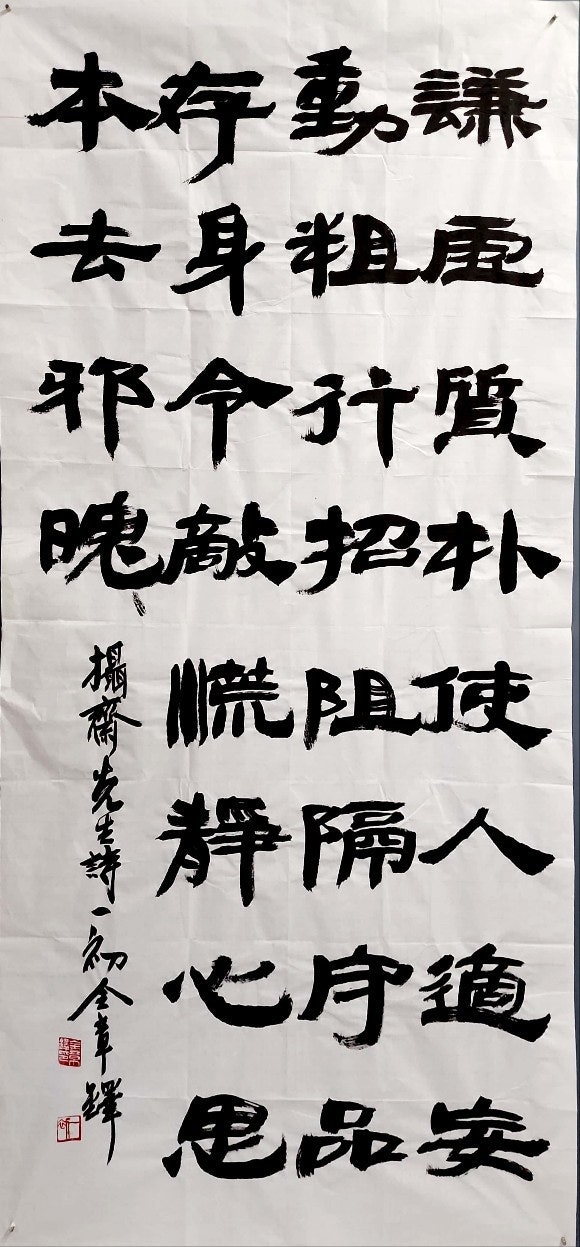 謙虛質朴使人適安
動粗行招阻隔守品
存身令敵慌靜心思
本去邪魄
攝齋先生詩一初金章鐸